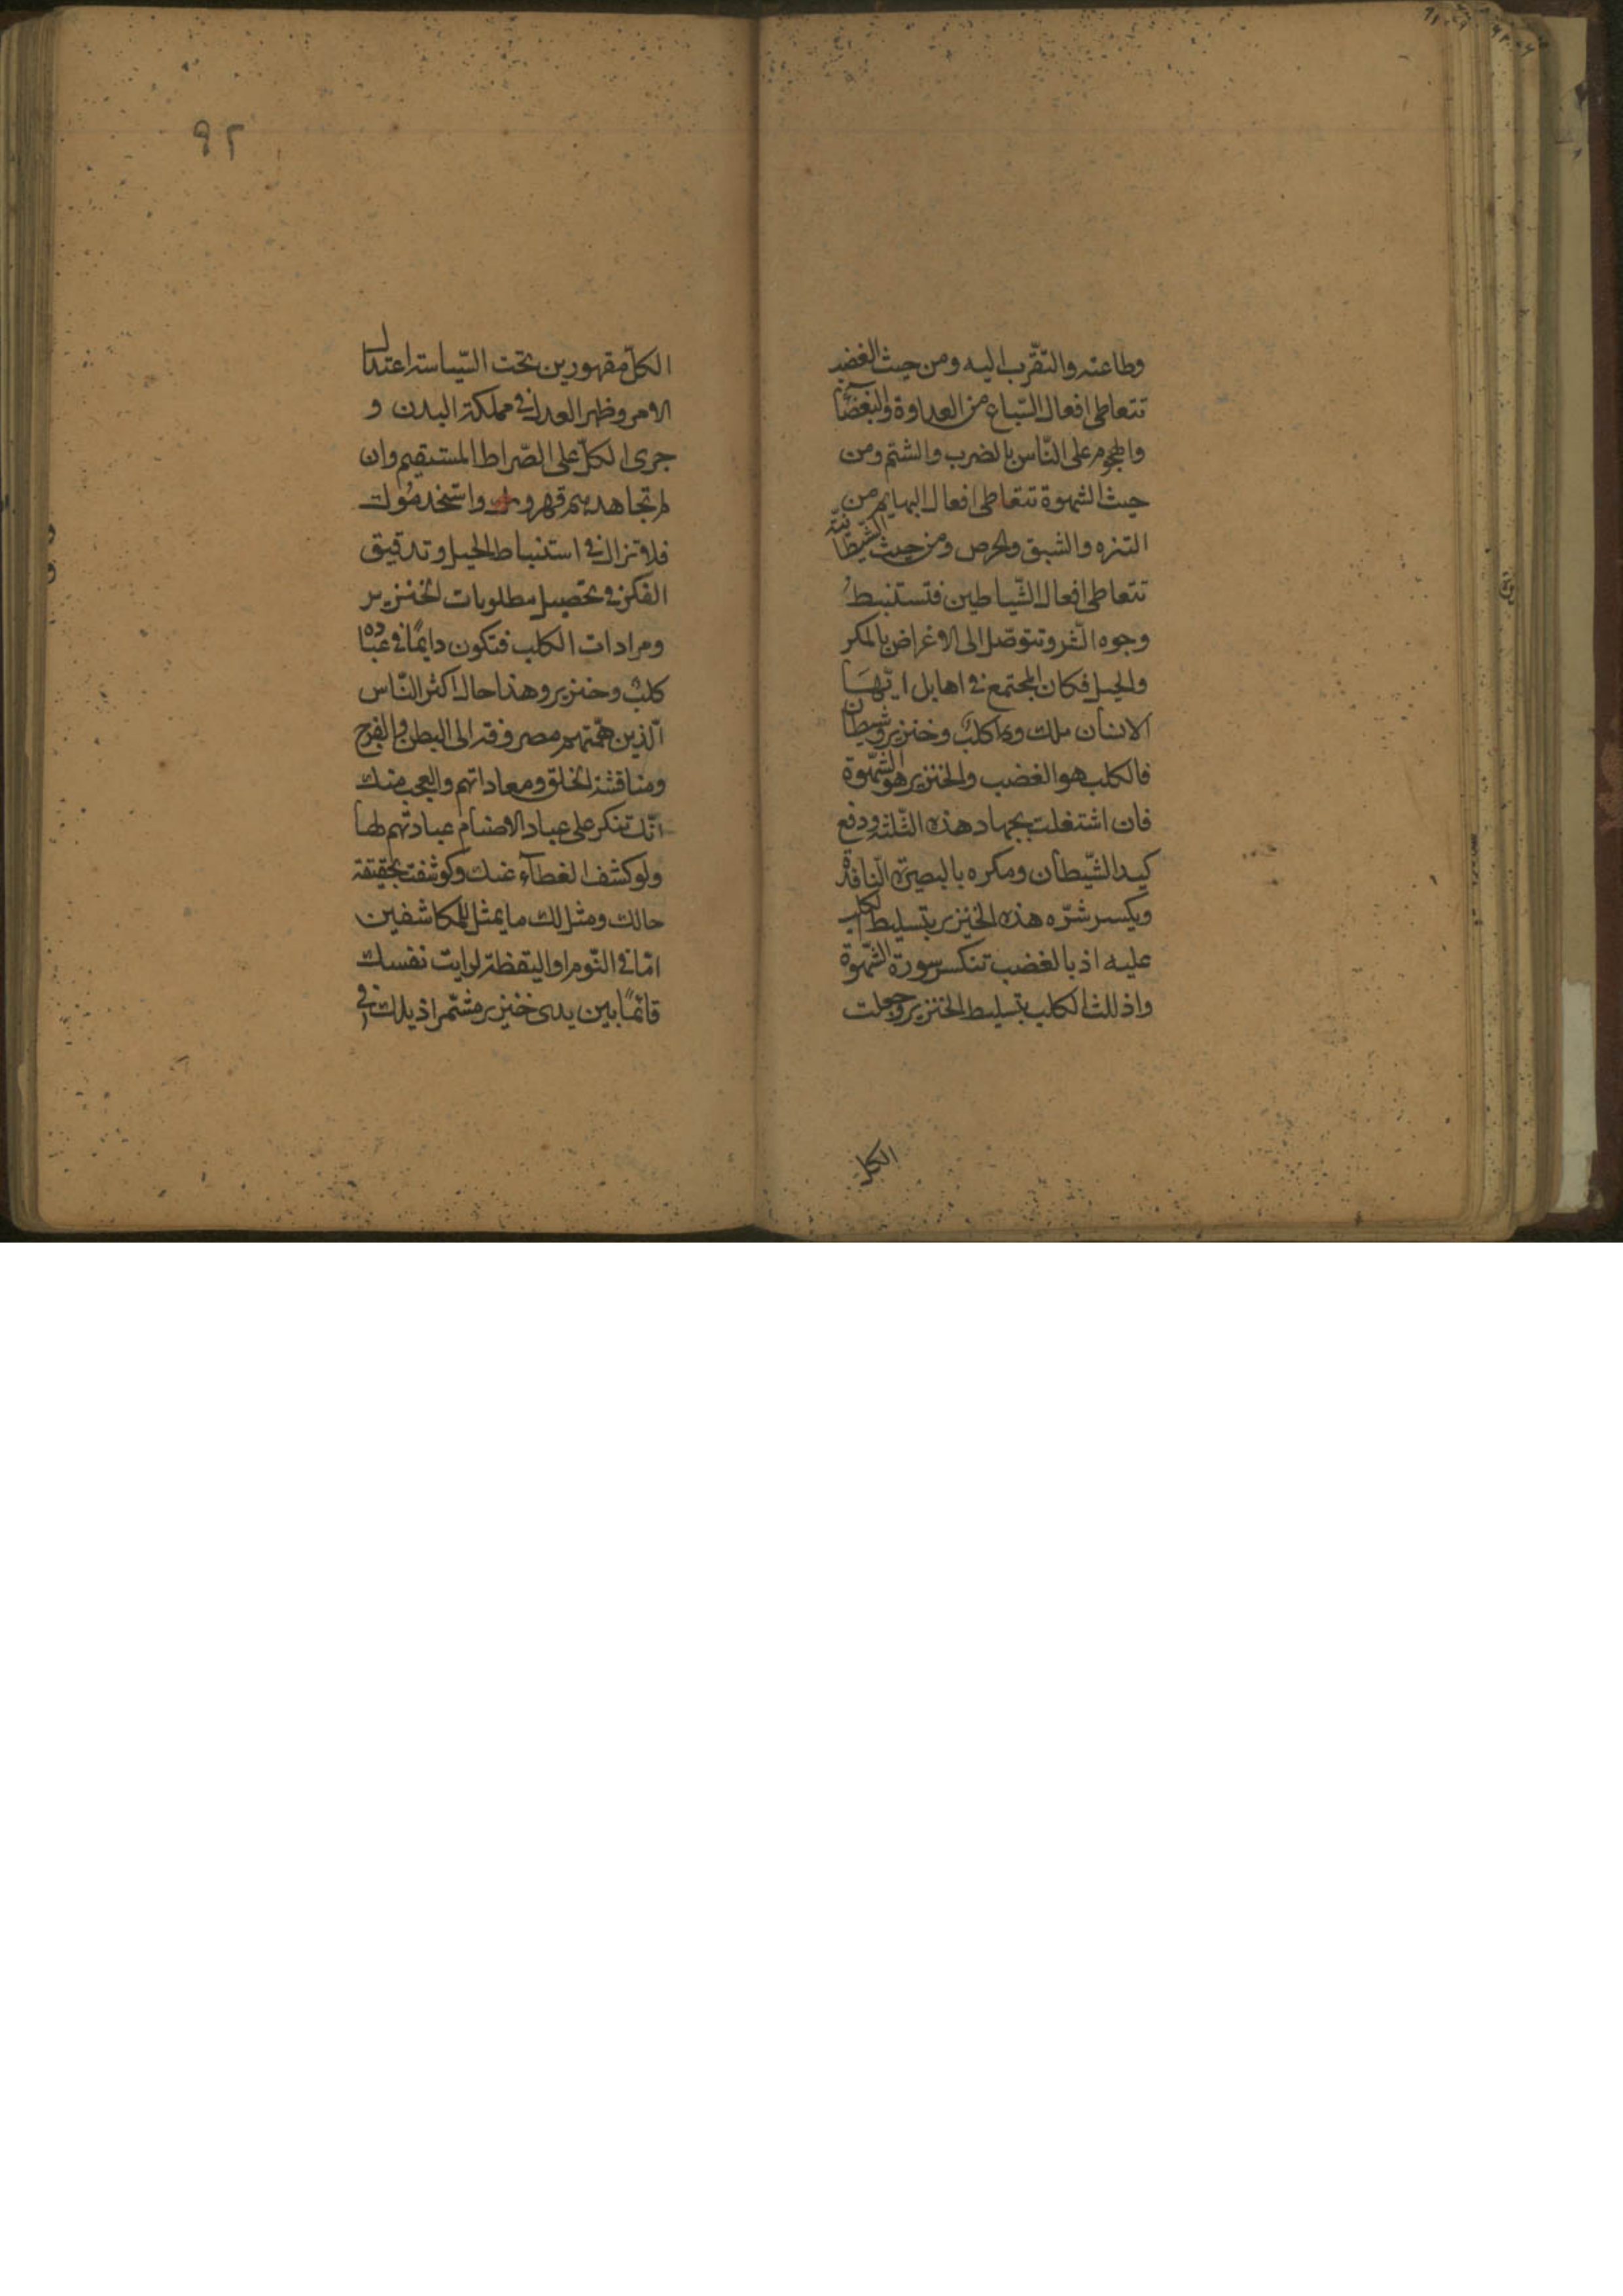 وطاعته والتّقرّب اليه ومن حيث الغضب
تتعاطى افعال السّباع من العداوة والبغضآء
والهجوم على النّاس بالضرب والشتم ومن
حيث الشهوة تتعاطى افعال البهايم من
التنزه والشبق والحرص ومن حيث الشّيطانيّة
تتعاطى افعال الشّياطين فتستنبط
وجوه الشّر وتتوصّل الى الاغراض بالمكر
والحيل فكان المجتمع في اهابل ايّها
الانسان ملك وكلب وخنزير وشيطان
فالكلب هو الغضب والخنزير هو الشّهوة
فان اشتغلت بجهاد هذه الثّلثة ودفع
كيد الشّيطان ومكره بالبصيرة النّافذة
ويكسر شرّه هذه الخنزير بتسليط الكلب
عليه اذ بالغضب تنكسر سورة الشّهوة
واذللت الكلب بتسليط الخنزير وجعلت
الكل
٩٢
الكلّ مقهورين تحت السّياسة اعتدل
الامر وظهر العدل في مملكة البدن و
جرى الكلّ على الصّراط المستقيم وان
لم تجاهدهم قهروك واستخدموك
فلا تزال في استنباط الحيل وتدقيق
الفكر في تحصيل مطلوبات الخنزير
ومرادات الكلب فتكون دايمًا في عبادة
كلب وخنزير وهذا حال اكثر النّاس
الّذين همّتهم مصروفة الى البطن والفرج
ومناقشة الخلق ومعاداتهم والعجب منك
انّك تنكر على عباد الاصنام عبادتهم لها
ولو كشف الغطآء عنك وكوشفت بحقيقة
حالك ومثل لك ما يمثل للمكاشفين
امّا في النّوم او اليقظة لرايت نفسك
قائمًا بين يدى خنزير مشتمّرا ذيلك في